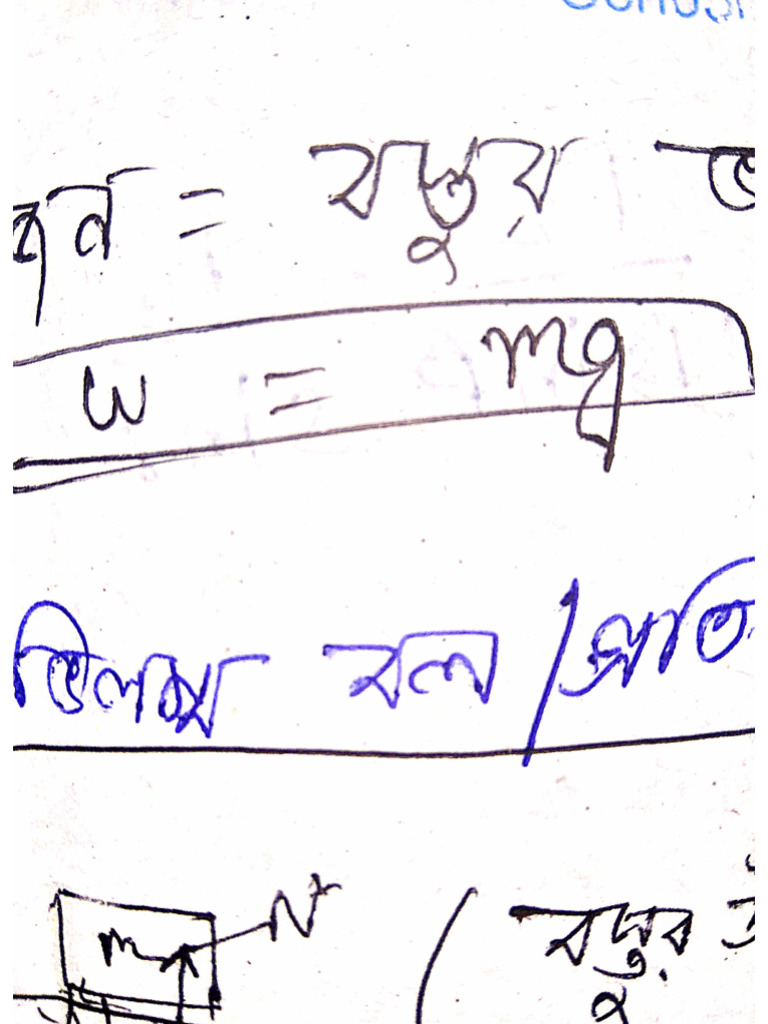 = বস্তুর
w = mg
ভিলম্ব বল / প্রতি
m N
( বস্তুর